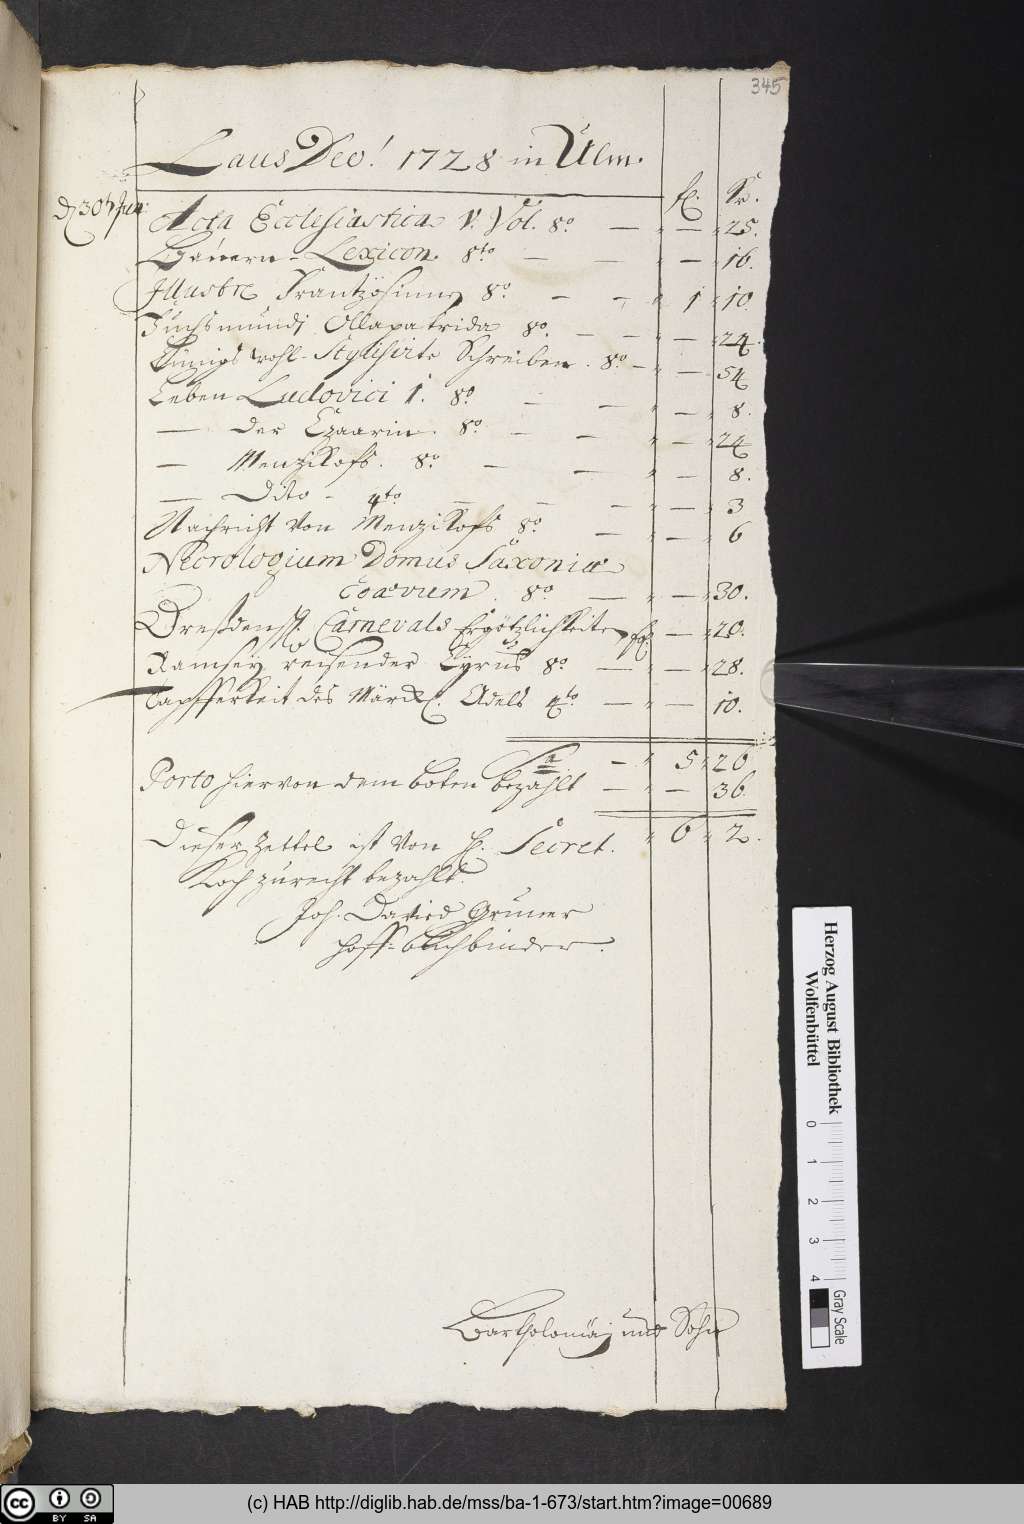 345
Laus Deo! 1728 in Ulm.
fl. Kr.
d. 30 Jun:
Acta Ecclesiastica V. Vol. 8o. — " — " 25.
Bauern-Lexicon. 8to — — " — " 16.
Illustre Frantzösinne 8o. — — " 1 " 10.
Fuchsmundi Ollapatrida 8o. — — " — " 24.
Königs wohl-Stylisirte Schreiben. 8o — " — " 54
Leben Ludovici 1. 8o. — — " — " 8.
— der Czaarin. 8o. — — " — " 24
— Menzikofs. 8o. — — " — " 8.
— Dito - 4to — — " — " 3
Nachricht von Menzikofs 8o. — " — " 6
Necrologium Domus Saxoniæ
Coævum. 8o — " — " 30.
Dreßdens Carnevals Ergötzlichkeiten " — " 20.
Ramsey reisender Cyrus 8o — " — " 28.
Tapfferkeit des Märck. Adels 4to — " — " 10.
Sa — " 5 " 26
Porto hiervon dem botten bezahlt — " — " 36.
" 6 " 2.
Dieser Zettel ist von H. Secret.
Koch zurecht bezahlt.
Joh. David Gruner
Hoff-buchbinder.
Bartholomäi und Sohn
Herzog August Bibliothek
Wolfenbüttel
0 1 2 3 4
Gray Scale
cc BY SA
(c) HAB http://diglib.hab.de/mss/ba-1-673/start.htm?image=00689